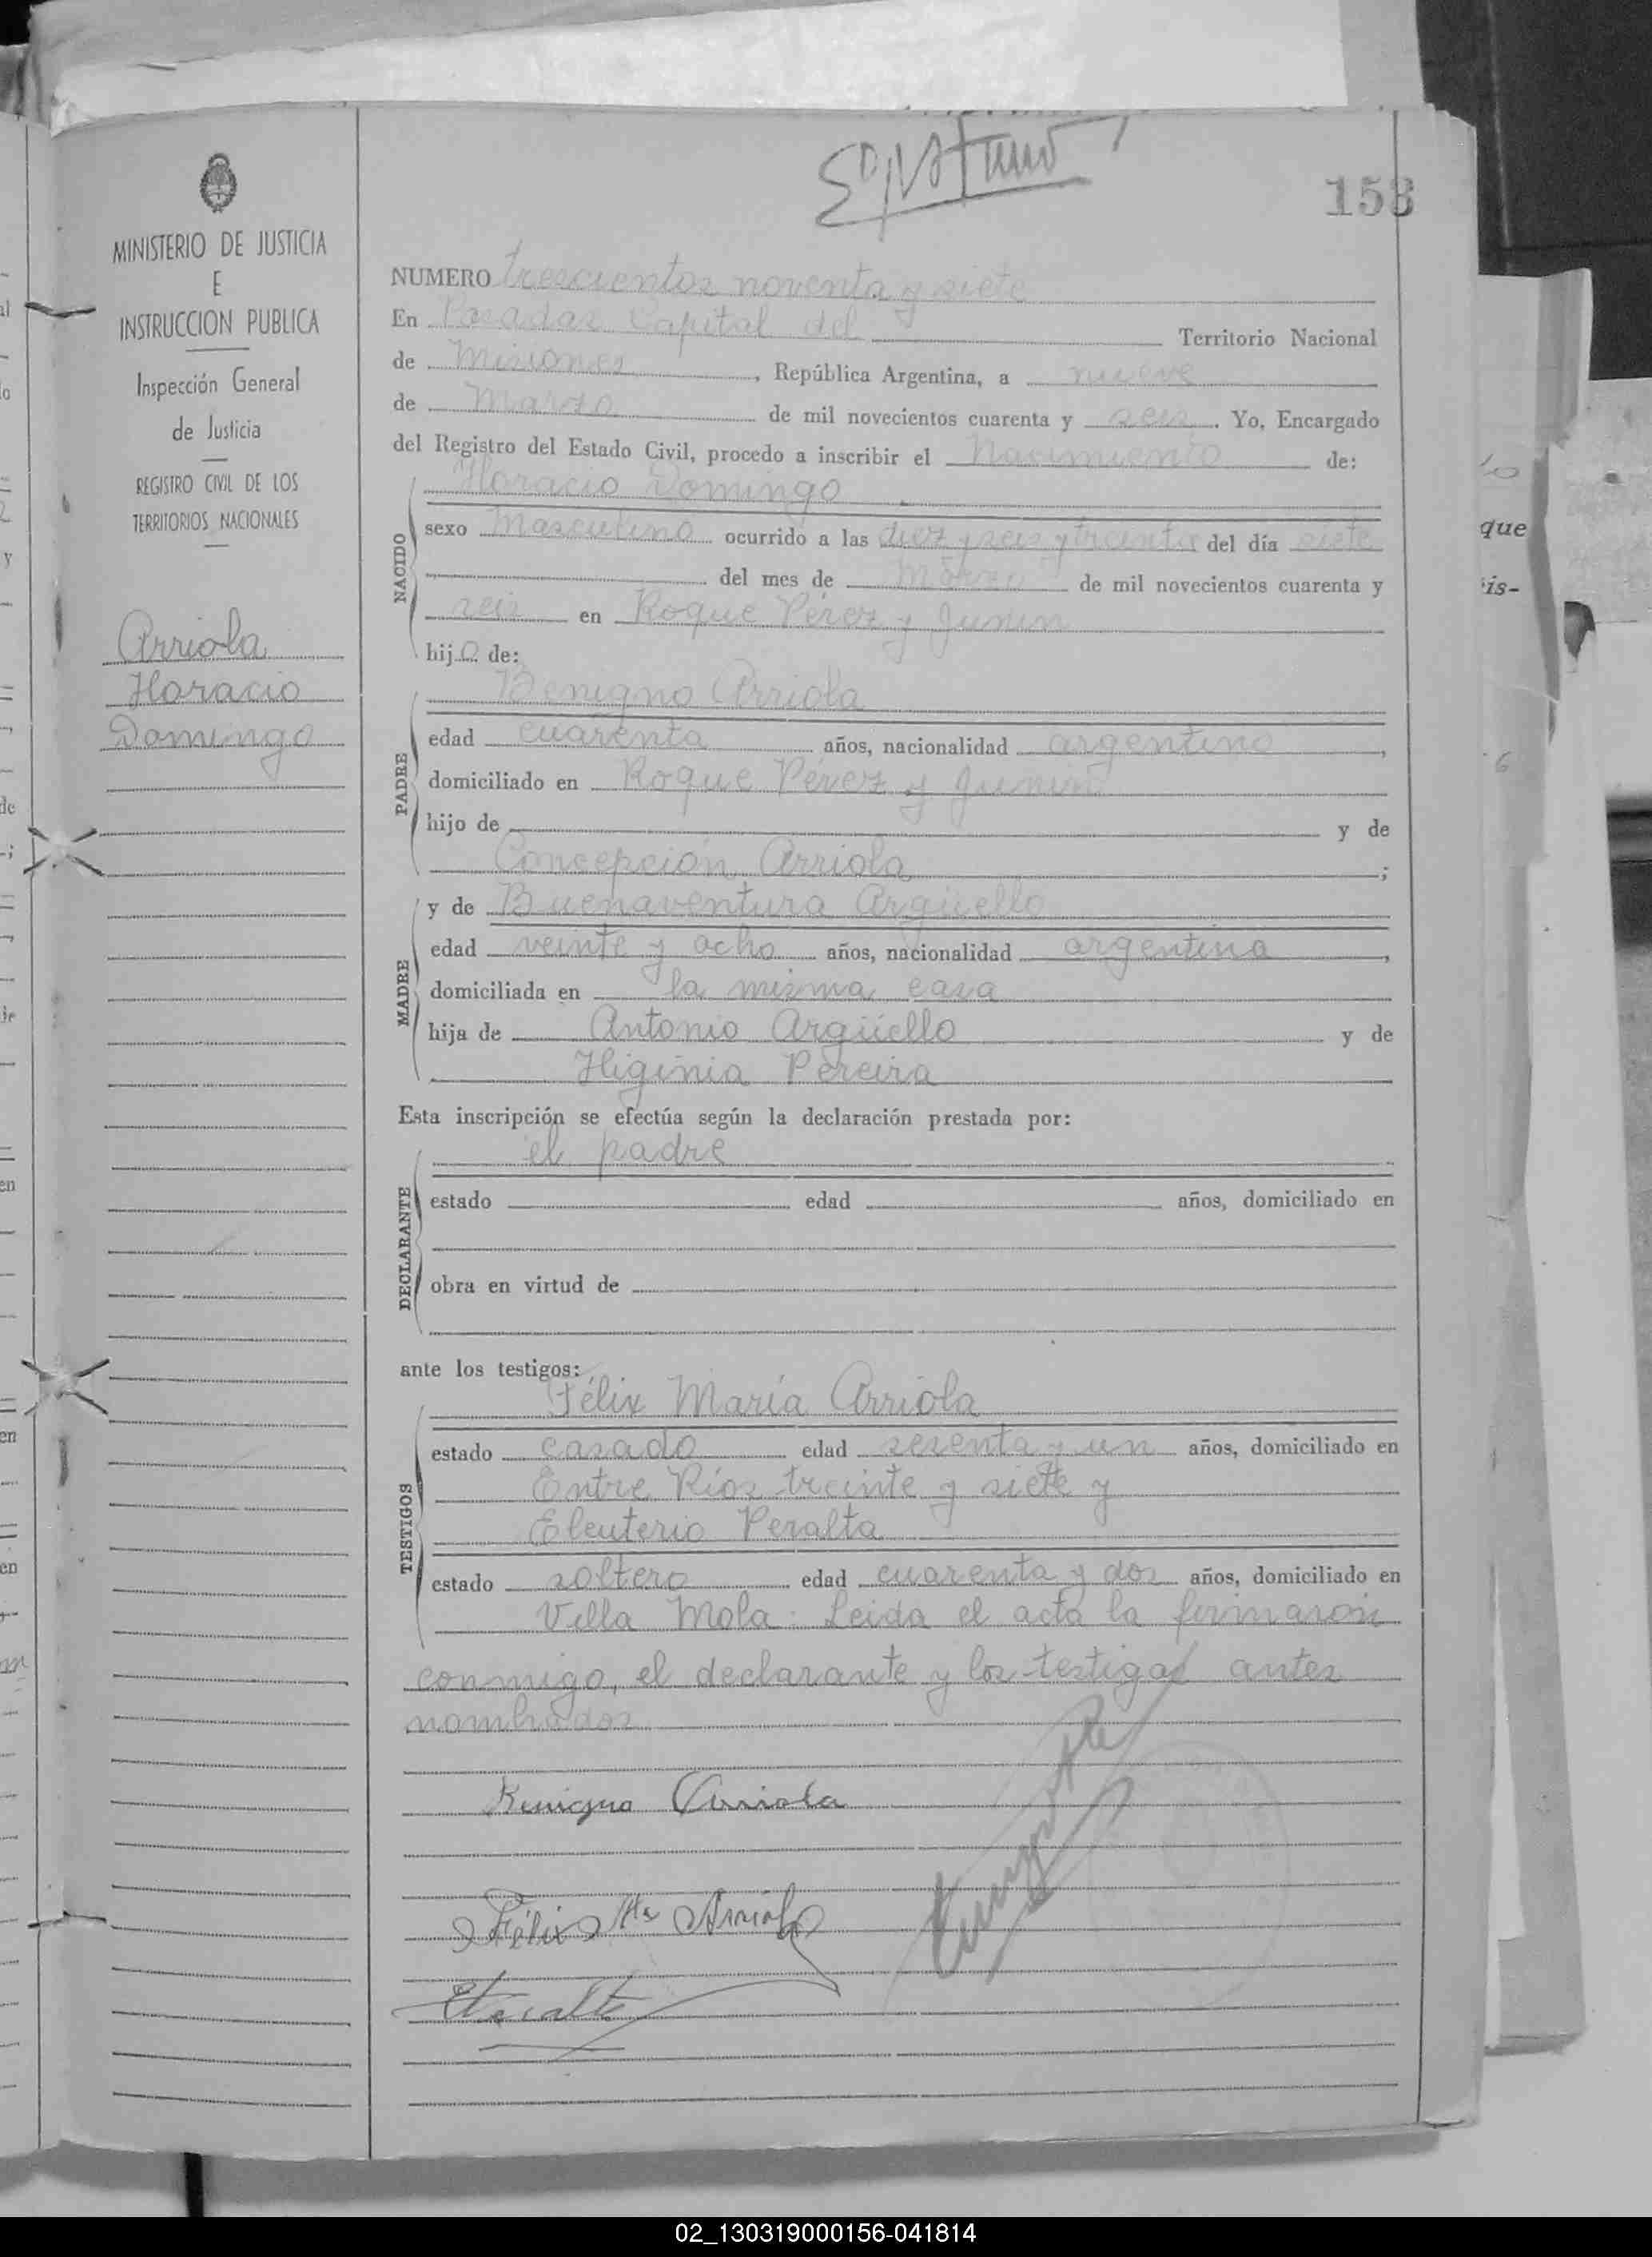 153
MINISTERIO DE JUSTICIA
E
INSTRUCCION PUBLICA
Inspección General
de Justicia
REGISTRO CIVIL DE LOS
TERRITORIOS NACIONALES
Arriola
Horacio
Domingo
NUMERO trescientos noventa y siete
En Posadas Capital del Territorio Nacional
de Misiones, República Argentina, a nueve
de Marzo de mil novecientos cuarenta y seis. Yo, Encargado
del Registro del Estado Civil, procedo a inscribir el Nacimiento de:
NACIDO
Horacio Domingo
sexo Masculino ocurrido a las diez y seis y treinta del día siete
del mes de Marzo de mil novecientos cuarenta y
seis en Roque Pérez y Junín
hijo de:
PADRE
Benigno Arriola
edad cuarenta años, nacionalidad argentino,
domiciliado en Roque Pérez y Junín
hijo de y de
Concepción Arriola;
MADRE
y de Buenaventura Argüello
edad veinte y ocho años, nacionalidad argentina,
domiciliada en la misma casa
hija de Antonio Argüello y de
Higinia Pereira
Esta inscripción se efectúa según la declaración prestada por:
DECLARANTE
el padre
estado edad años, domiciliado en
obra en virtud de
ante los testigos:
TESTIGOS
Félix María Arriola
estado casado edad sesenta y un años, domiciliado en
Entre Ríos treinte y siete y
Eleuterio Peralta
estado soltero edad cuarenta y dos años, domiciliado en
Villa Mola. Leida el acta la firmaron
conmigo, el declarante y los testigos antes
nombrados
Benigno Arriola
Félix Ma Arriola
EPeralta
que
is-
02_130319000156-041814